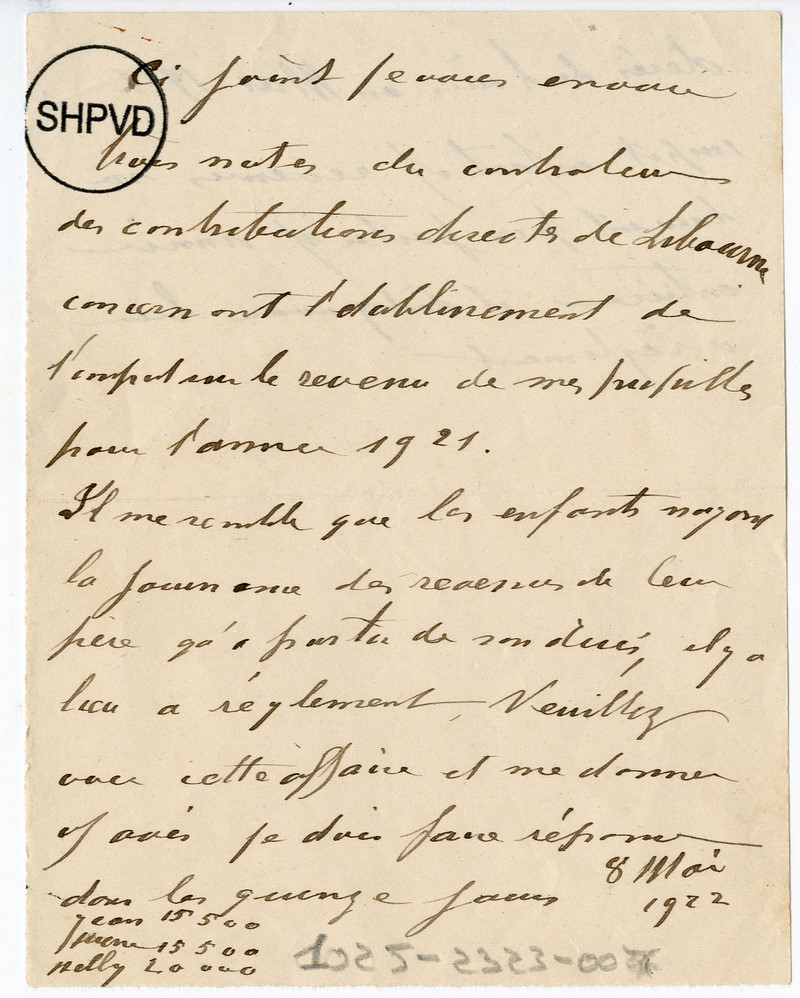 SHPVD
Ci joint je vous envoie
trois notes du controleur
des contributions directes de Libourne
concernant l'établissement de
l'impot sur le revenu de mes pupilles
pour l'année 1921.
Il me semble que les enfants n'ayant
la jouissance des revenus de leur
père qu'a partir de son décès, il y a
lieu a réglement, Veuillez
voir cette affaire et me donner
avis je dois faire réponse
dans les quinze jours
8 Mai
1922
Jean 15 500
15 500
Nelly 20 000